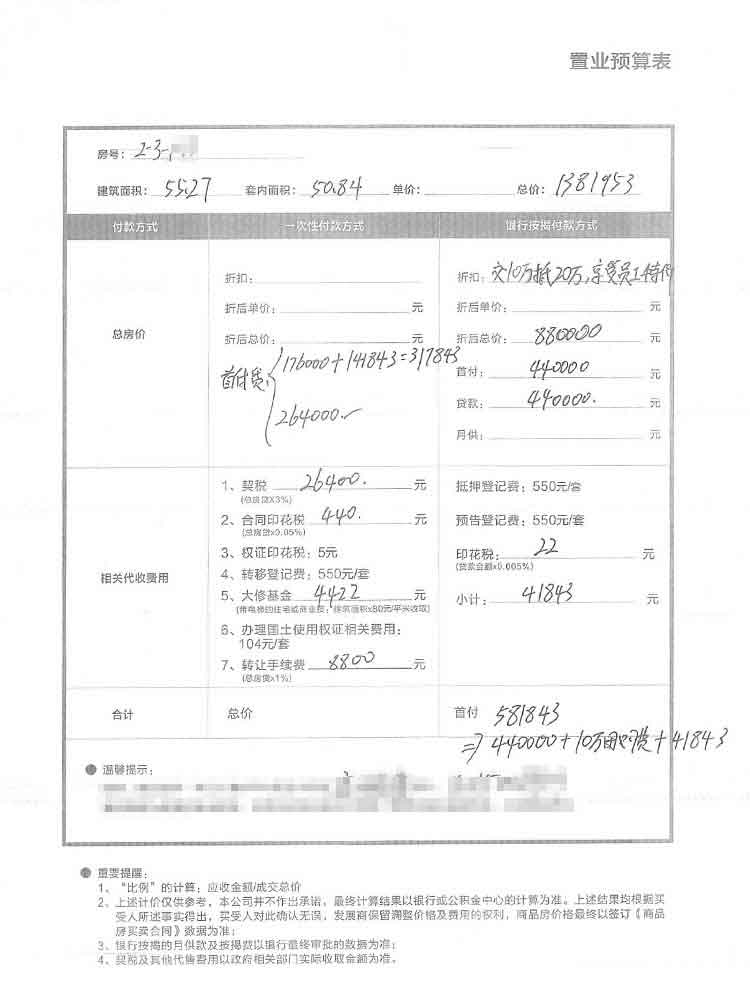 置业预算表
房号：2-3-
建筑面积：55.27 套内面积：50.84 单价： 总价：1381953
付款方式 一次性付款方式 银行按揭付款方式
总房价
折扣：
折后单价： 元
折后总价： 元
首付贷：
176000+141843=317843
264000.
折扣：交10万抵20万,享受员工特价
折后单价： 元
折后总价：880000 元
首付：440000 元
贷款：440000. 元
月供： 元
相关代收费用
1、契税 26400. 元
(总房贷X3%)
2、合同印花税 440. 元
(总房贷x0.05%)
3、权证印花税：5元
4、转移登记费：550元/套
5、大修基金 4422 元
(带电梯的住宅或商业费，建筑面积x80元/平米收取)
6、办理国土使用权证相关费用：
104元/套
7、转让手续费 8800 元
(总房贷x1%)
抵押登记费：550元/套
预告登记费：550元/套
印花税： 22 元
(贷款金额x0.005%)
小计： 41843 元
合计 总价 首付 581843
=> 440000+10万团购费+41843
● 温馨提示：
● 重要提醒：
1、“比例”的计算：应收金额/成交总价
2、上述计价仅供参考，本公司并不作出承诺，最终计算结果以银行或公积金中心的计算为准。上述结果均根据买
受人所述事实得出，买受人对此确认无误，发展商保留调整价格及费用的权利，商品房价格最终以签订《商品
房买卖合同》数据为准；
3、银行按揭的月供款及按揭贷以银行最终审批的数据为准；
4、契税及其他代售费用以政府相关部门实际收取金额为准。